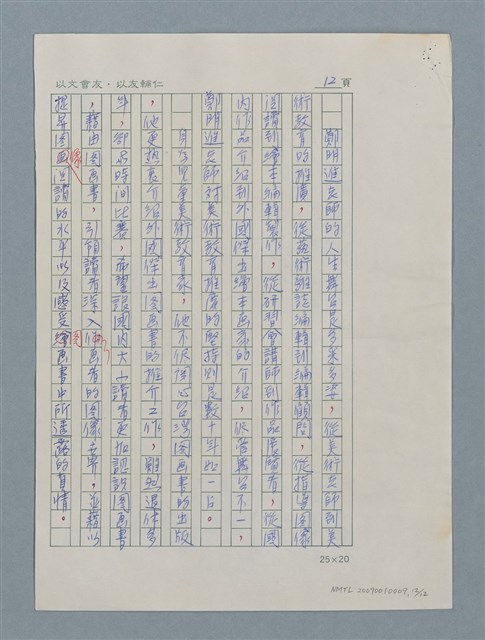 以文會友・以友輔仁
12頁
鄭明進老師的人生舞台是多采多姿，從美術老師到美
術教育的推廣，從藝術雜誌編輯到編輯顧問，從指導圖像
閱讀到繪本編輯製作，從研習會講師到作品展覽者，從國
內作品介紹到外國傑出繪本畫家的介紹，但舞台不一，
鄭明進老師對美術教育推廣的堅持則是數十年如一日。
身為兒童美術教育家，他不但關心台灣圖畫書的出版
，他更熱衷介紹外國傑出圖畫書的推介工作，雖然退休多
年，卻花時間比賽，希望讓國內大小讀者更加認識圖畫書
，藉由圖畫書，引領讀者深入插畫者的圖像世界，並藉以
提昇圖像閱讀的水平以及感受圖畫書中所透露的真情。
25×20
NMTL 20090010009